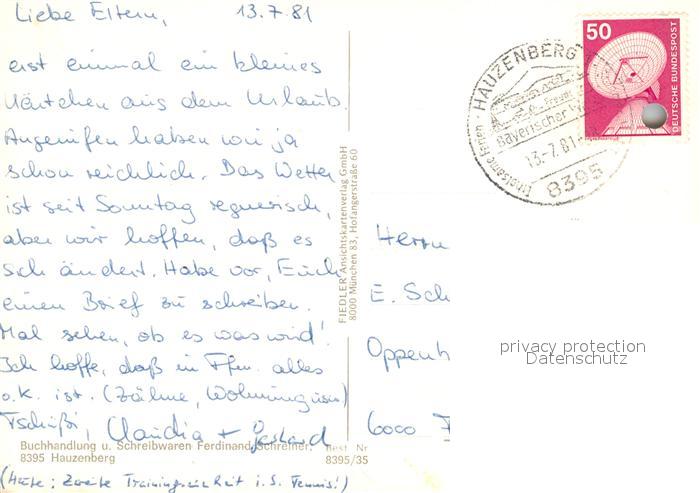 Liebe Eltern, 13.7.81
erst einmal ein kleines
Kärtchen aus dem Urlaub.
Angerufen haben wir ja
schon reichlich. Das Wetter
ist seit Sonntag regnerisch,
aber wir hoffen, daß es
sich ändert. Habe vor, Euch
einen Brief zu schreiben.
Mal sehen, ob es was wird!
Ich hoffe, daß in Ffm. alles
o.k. ist. (Zähne, Wohnung usw)
Tschüß, Claudia + Gerhard
Buchhandlung u. Schreibwaren Ferdinand Schreiner.
8395 Hauzenberg
Best. Nr
8395/35
(Heute: Zweite Trainingseinheit i. S. Tennis!)
FIEDLER Ansichtskartenverlag GmbH
8000 München 83, Hofangerstraße 60
HAUZENBERG
Bayerischer
13.-7.81
8395
50
DEUTSCHE BUNDESPOST
Herrn
E. Sch
Oppenh
6000 F
privacy protection
Datenschutz